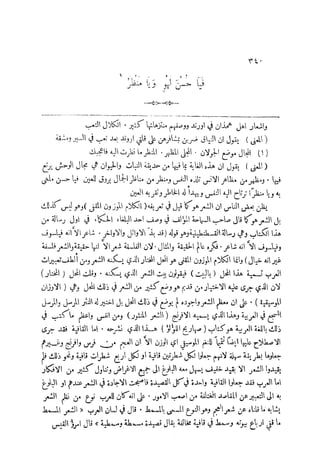 ٣٤٠
فيا حُسنَ لهوٍ ويا منظرُ
واشعار اهل همذان في اروند ووصفهم منتزهاتها كثير . الكلال التعب
(المعنى) يقول ان النياق ضربن بمشافرهن على اروند بعد تعب في السير ومشقة
(١) المجال موضع الجولان . المجلى المظهر . المنظر ما نظرت اليه فاعجبك
(المعنى) يقول هذه الغاية بما فيها من حديقة النبات والحيوان هي مجال الوحش يرتع
فيها . ومظهر من مظاهر الانس تلذه النفس ومنظر من مناظر الجمال يروق للعين . فيا حسن ملهى
به ويا منظرًا ترتاح اليه النفس ويبدأ له الخاطر وتقر به العين
يظن بعض الناس ان الشعر هو كما قيل في تعريفه (الكلام الموزون المقفى) وهو ليس كذلك
بل الشعر هو كما قال صاحب السياحة المؤلف في وصف احد البلغاء الحكماء في اول رسالة من
هذا الكتاب وهي رسالة القسطنطينية وهو قوله (قد بذ الاوائل والاواخر . شاعر الا انه فيلسوف
وفيلسوف الا انه شاعر . فكره عالم الحقيقة والمثال . لان الفلسفة شعر الا انها حقيقة والشعر فلسفة
غير انه خيال) وانما الكلام الموزون المقفى هو المحل المختار الذي يسكنه الشعر ومن ألطف تعبيرات
العرب تسمية هذا المحل (بالبيت) فيقولون بيت الشعر الذي يسكنه . وفلك المحل (المختار)
لان الذي جرى عليه الاختيار من قديم هو وضع كثير من الشعر في ذلك المحل وهي (الاوزان
الموسيقية) . على ان معظم الشعر واجوده لم يوضع في ذلك المحل بل اختير له النثر المرسل والمرسل
السجع في العربية وهذا الذي يسميه الافرنج (الشعر المنثور) ومن انفس واعظم ما كتب في
ذلك باللغة العربية هو كتاب (صهاريج اللؤلؤ) هذا الذي نشرحه . اما القافية فقد جرى
الاصطلاح عليها ايضًا تتميمًا للنغم الموسيقي اي الوزن الا ان العجم من فرس وافرنج وغيرهم
جعلوها بطريقة سهلة لانهم جعلوا لكل شطرتين قافية او لكل اربع شطرات قافية ونحو ذلك فلم
يقيدوا الشعر الا بقيد خفيف يسهل معه البلوغ الى جميع الاغراض وتناول كثير من الافكار
اما العرب فقد جعلوا القافية واحدة في كل القصيدة فاصبحت الاجادة في الشعر عندهم او البلوغ
به الى التعبير عن المقاصد المختلفة من اصعب الامور . على انه كان للعرب نوع من نظم الشعر
يشابه ما نقلناه عن شعر العجم وهو النوع المسمى بالمسمط . قال في لسان العرب « الشعر المسمط
ما قفي ارباع بيوته وسمط في قافية مخالفة يقال قصيدة مسمطة وسمطية » قال امرؤ القيس